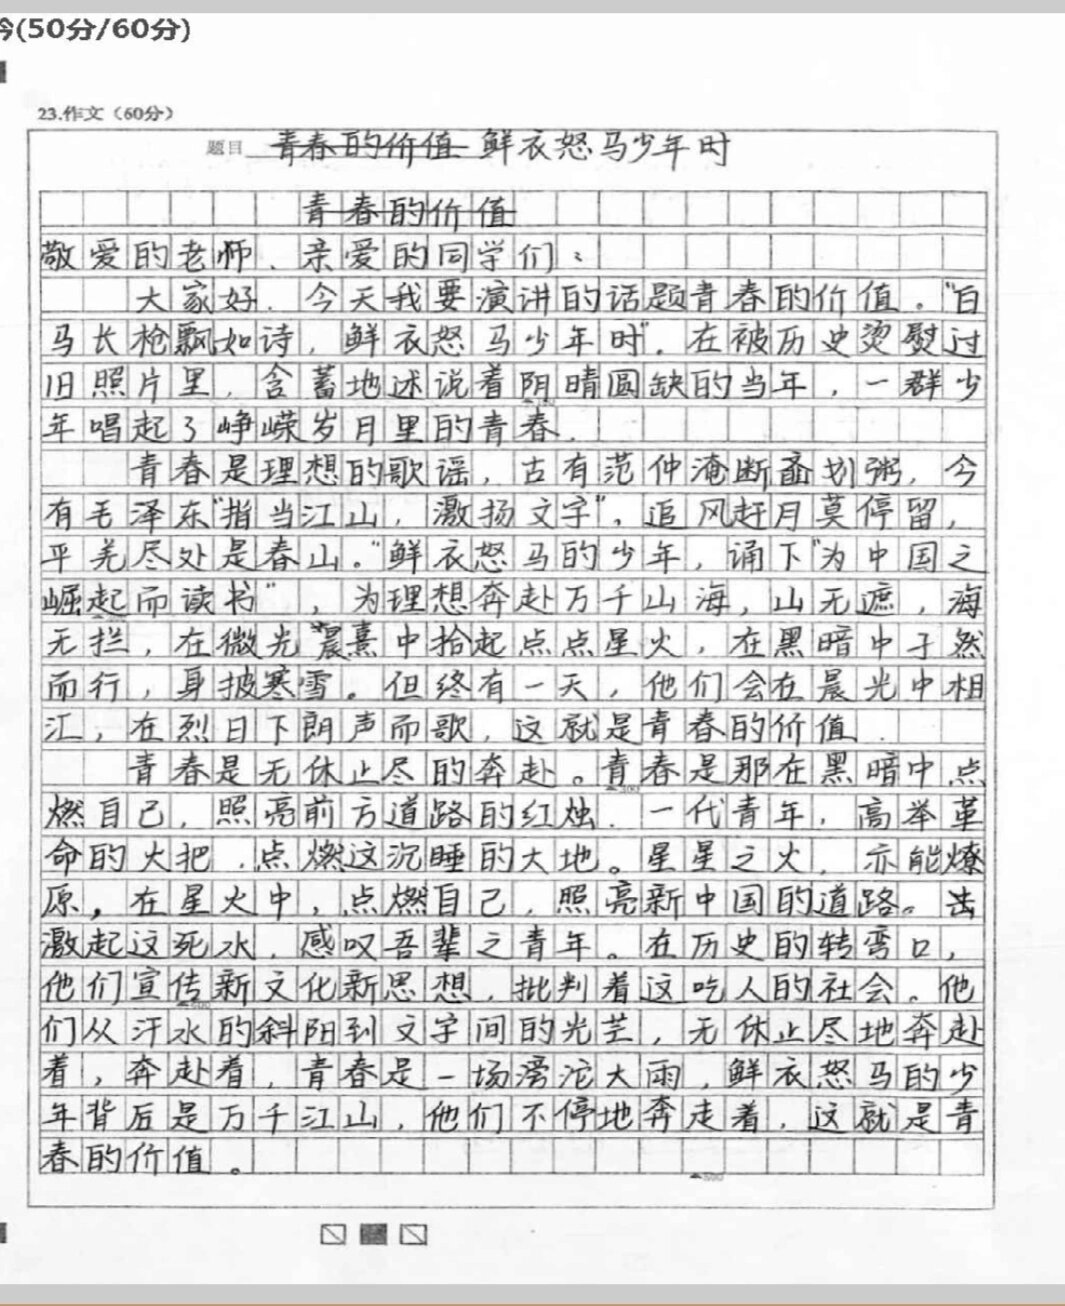 (50分/60分)
23.作文（60分）
题目 青春的价值 鲜衣怒马少年时
青春的价值
敬爱的老师、亲爱的同学们：
大家好．今天我要演讲的话题青春的价值。“白
马长枪飘如诗，鲜衣怒马少年时”．在被历史烫熨过
旧照片里，含蓄地述说着阴晴圆缺的当年，一群少
年唱起了峥嵘岁月里的青春．
青春是理想的歌谣，古有范仲淹断齑划粥，今
有毛泽东“指当江山，激扬文字”，追风赶月莫停留，
平芜尽处是春山。“鲜衣怒马的少年，诵下“为中国之
崛起而读书”，为理想奔赴万千山海，山无遮，海
无拦，在微光晨熹中拾起点点星火，在黑暗中孑然
而行，身披寒雪。但终有一天，他们会在晨光中相
汇，在烈日下朗声而歌，这就是青春的价值．
青春是无休止尽的奔赴。青春是那在黑暗中点
燃自己，照亮前方道路的红烛．一代青年，高举革
命的火把，点燃这沉睡的大地。星星之火，亦能燎
原，在星火中，点燃自己，照亮新中国的道路。击
激起这死水，感叹吾辈之青年。在历史的转弯口，
他们宣传新文化新思想，批判着这吃人的社会。他
们从汗水的斜阳到文字间的光芒，无休止尽地奔赴
着，奔赴着，青春是一场滂沱大雨，鲜衣怒马的少
年背后是万千江山，他们不停地奔走着，这就是青
春的价值。